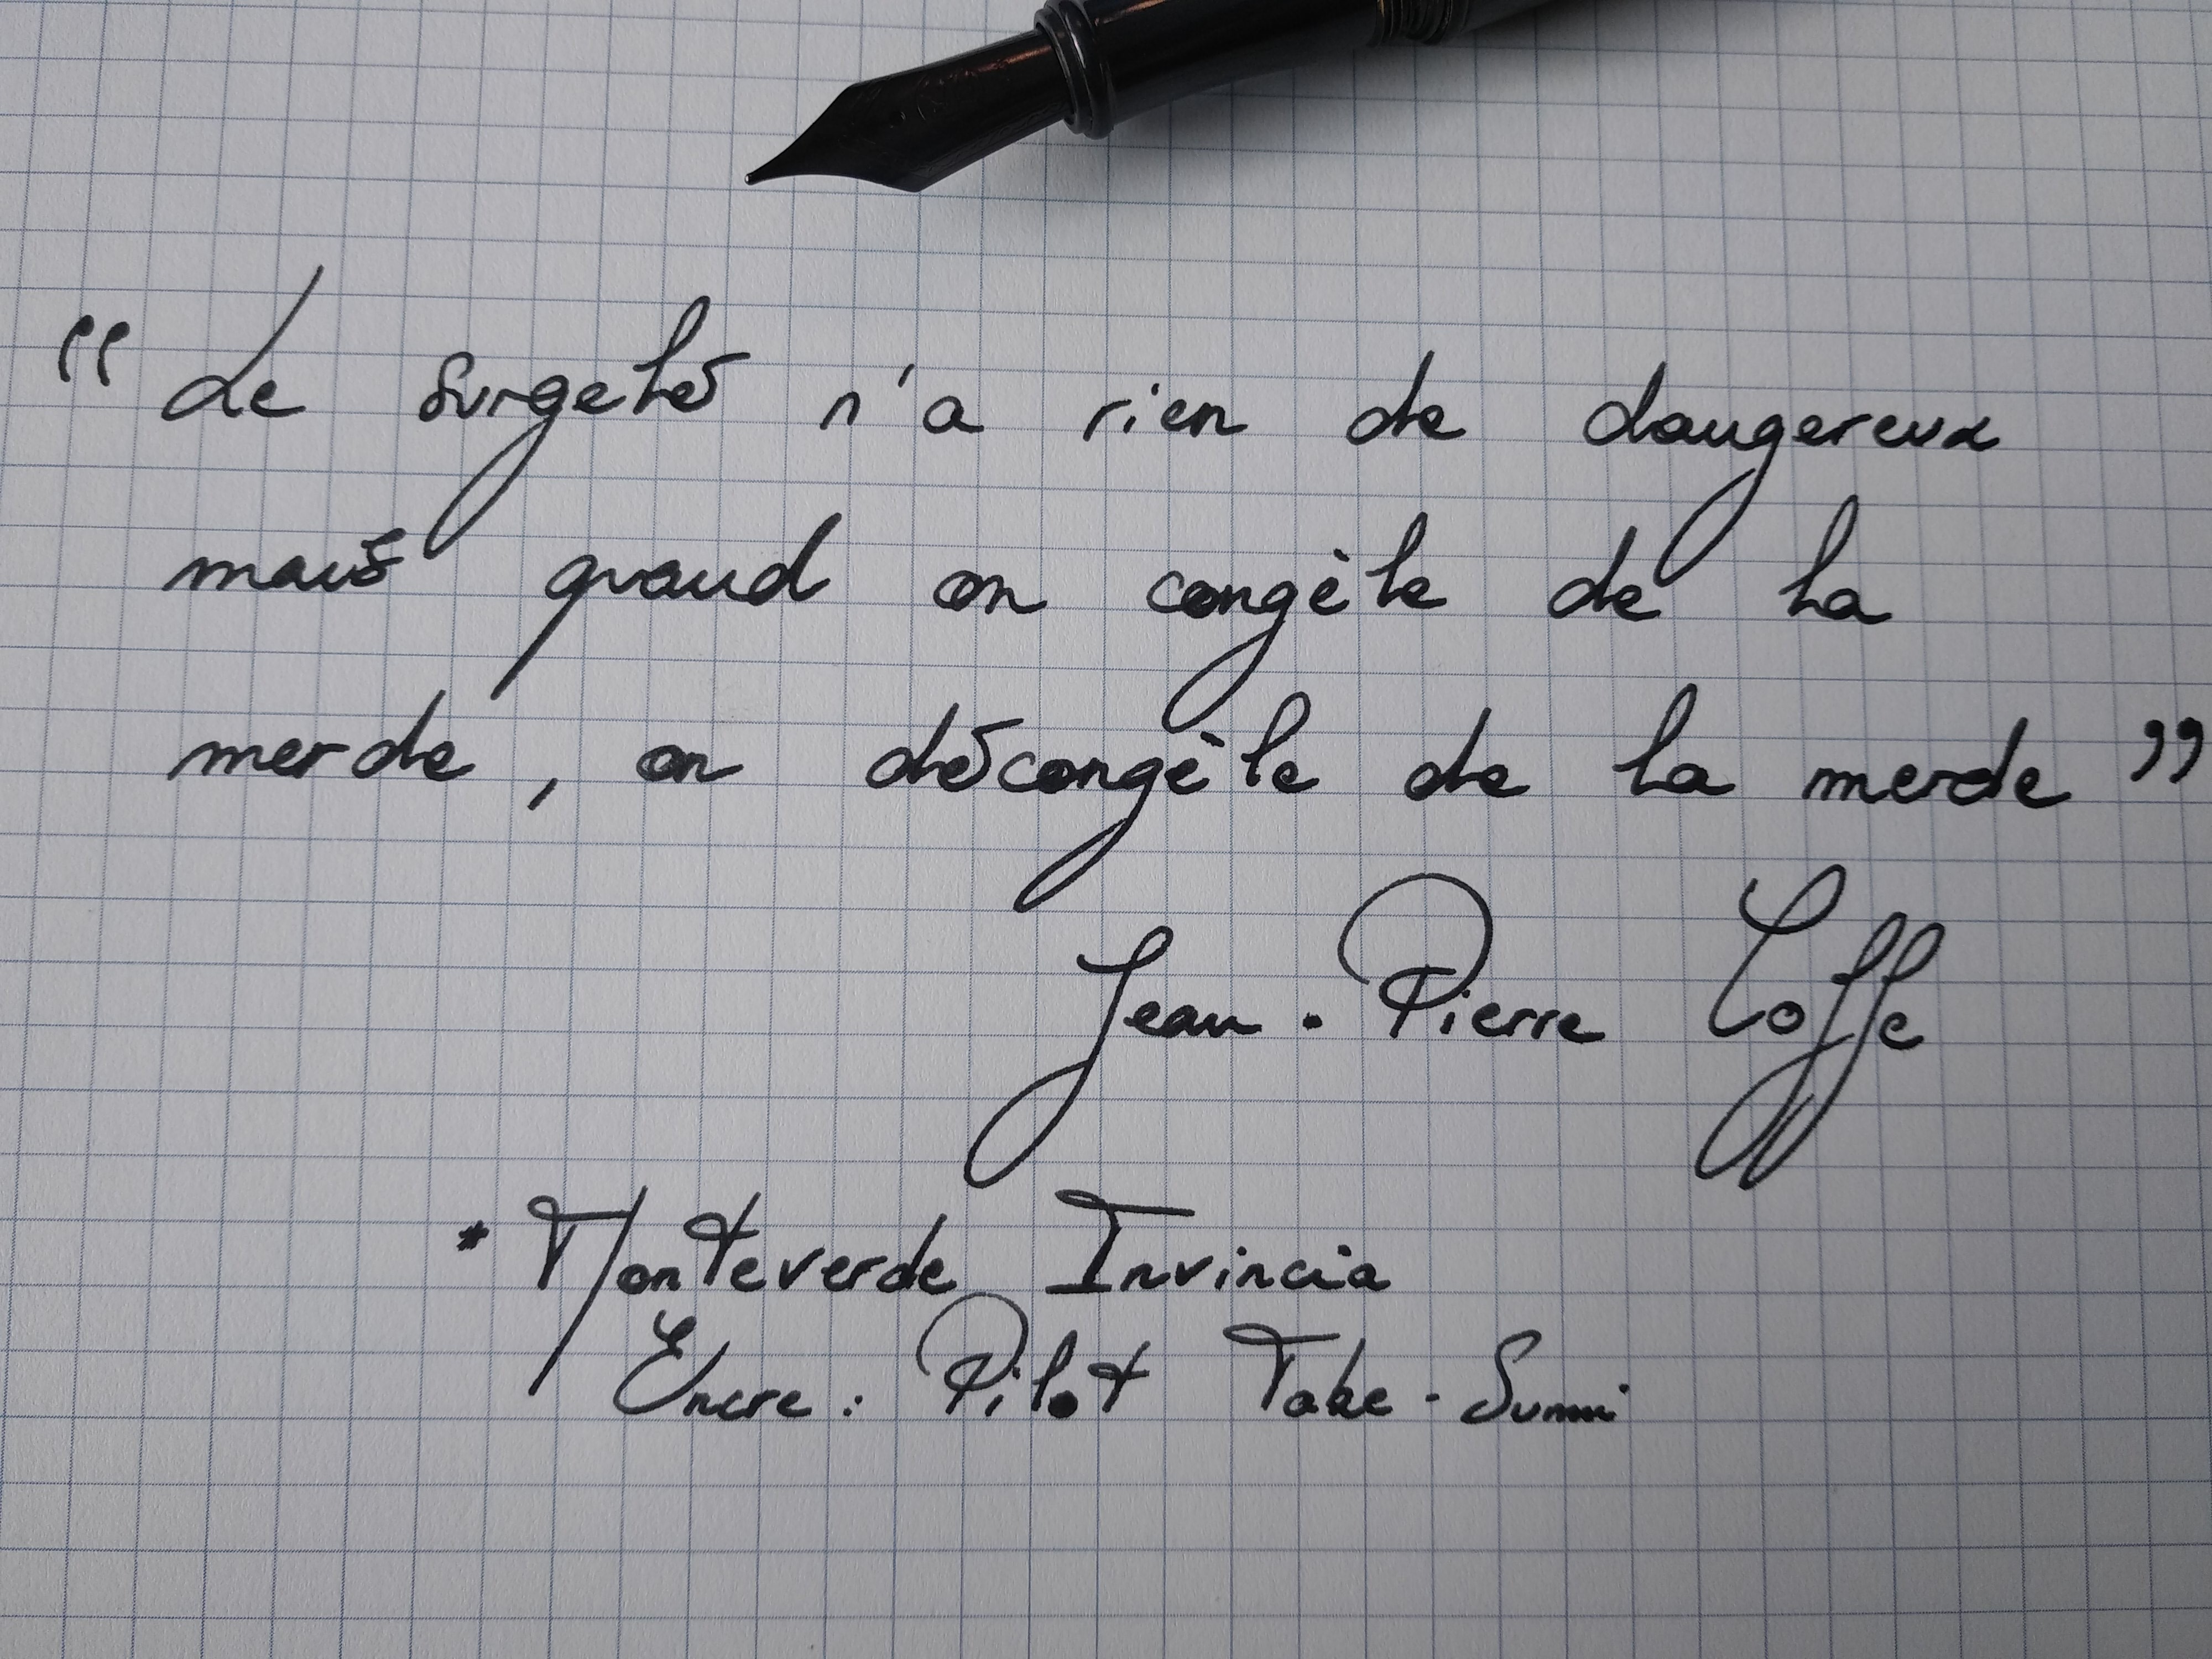 “ Le surgelé n'a rien de dangereux
mais quand on congèle de la
merde, on décongèle de la merde ”
Jean-Pierre Coffe
* Monteverde Invincia
Encre : Pilot Take-Sumi